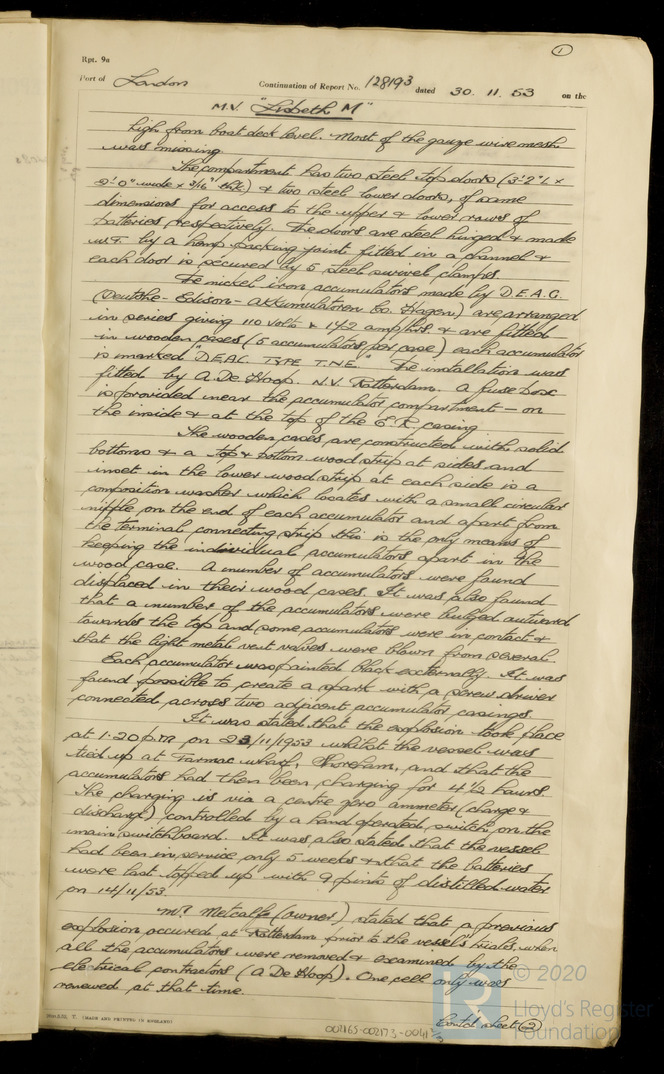 ①
Rpt. 9a
Port of London Continuation of Report No. 128193 dated 30. 11. 53 on the
M.V. "Lisbeth M"
high from boat deck level. Most of the gauze wire mesh
was missing
The compartment has two steel top doors (3'-2" L x
2'-0" wide x 3/16" thk) & two steel lower doors, of same
dimensions for access to the upper & lower rows of
batteries respectively. The doors are steel hinged & made
W.T. by a hemp packing joint fitted in a channel &
each door is secured by 5 steel swivel clamps.
The nickel iron accumulators made by D.E.A.G.
(Deutsche-Edison-Akkumulatoren Co. Hagen) are arranged
in series giving 110 volts & 142 amp/hrs & are fitted
in wooden cases (5 accumulators per case) each accumulator
is marked "D.E.A.C. TYPE T.N.E." The installation was
fitted by A. De Hoop. N.V. Rotterdam. A fuse box
is provided near the accumulator compartment – on
the inside & at the top of the E.R. casing
The wooden cases are constructed with solid
bottoms & a top & bottom wood strip at sides and
inset in the lower wood strip at each side is a
composition washer which locates with a small circular
nipple on the end of each accumulator and apart from
the terminal connecting strip this is the only means of
keeping the individual accumulators apart in the
wood case. A number of accumulators were found
displaced in their wood cases. It was also found
that a number of the accumulators were bulged outward
towards the top and some accumulators were in contact &
that the light metal vent valves were blown from several.
Each accumulator was painted black externally. It was
found possible to create a spark with a screw driver
connected across two adjacent accumulator casings.
It was stated that the explosion took place
at 1.20 p.m on 23/11/1953 whilst the vessel was
tied up at Tarmac wharf, Shoreham, and that the
accumulators had then been charging for 4½ hours
The charging is via a centre zero ammeter (charge &
discharge) controlled by a hand operated switch on the
main switchboard. It was also stated that the vessel
had been in service only 5 weeks & that the batteries
were last topped up with 9 pints of distilled water
on 14/11/53.
Mr. Metcalfe (Owner) stated that a previous
explosion occured at Rotterdam prior to the vessels trials, when
all the accumulators were removed & examined by the
electrical contractors (A De Hoop). One cell only was
renewed at that time.
Contd sheet ②
T. (MADE AND PRINTED IN ENGLAND)
002165-002173-0041 3/3
© 2020
Lloyd's Register
Foundation